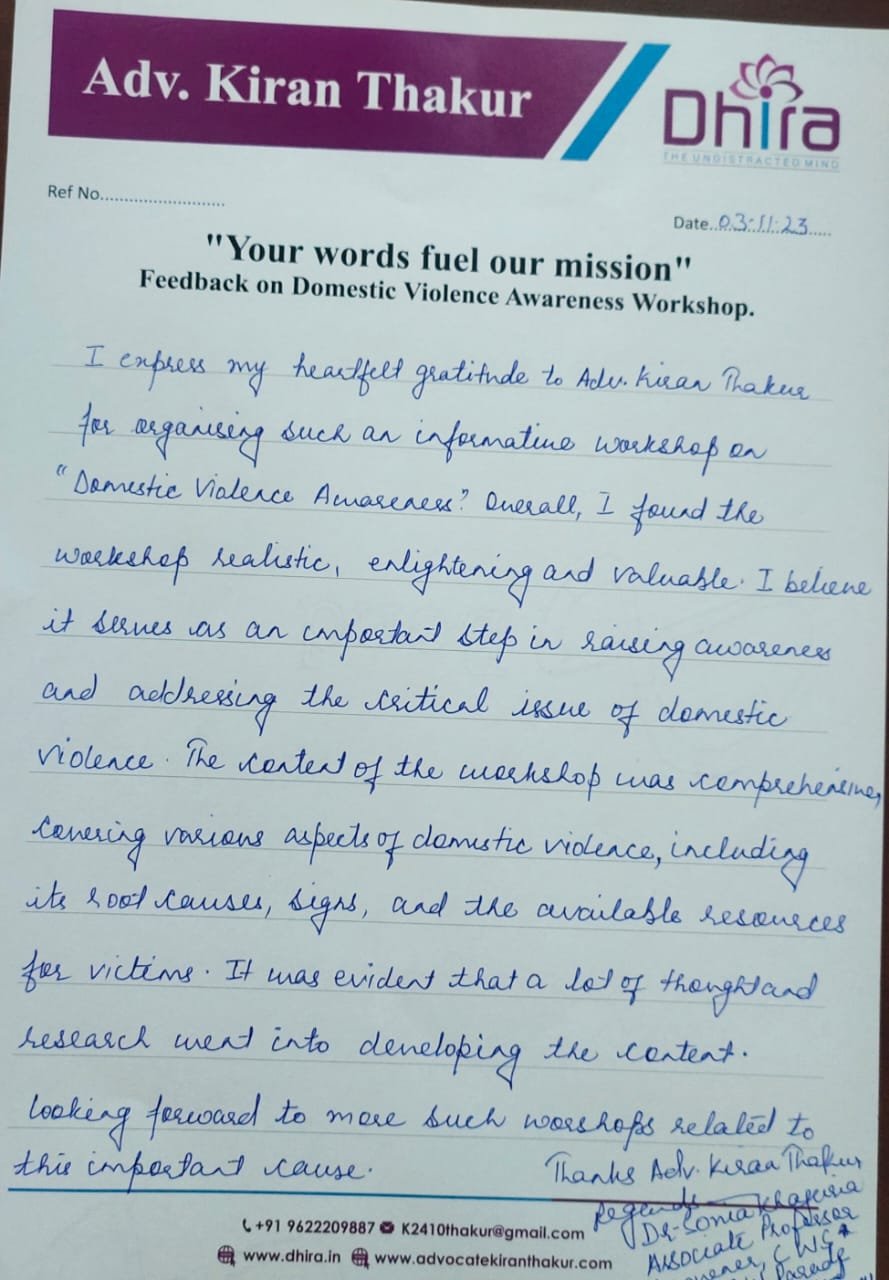 Adv. Kiran Thakur
Dhira
THE UNDISTRACTED MIND
Ref No..........................
Date..03.11.23.....
"Your words fuel our mission"
Feedback on Domestic Violence Awareness Workshop.
I express my heartfelt gratitude to Adv. Kiran Thakur
for organising such an informative workshop on
"Domestic Violence Awareness". Overall, I found the
workshop realistic, enlightening and valuable. I believe
it serves as an important step in raising awareness
and addressing the critical issue of domestic
violence. The content of the workshop was comprehensive,
covering various aspects of domestic violence, including
its root causes, signs, and the available resources
for victims. It was evident that a lot of thought and
research went into developing the content.
looking forward to more such worshops related to
this important cause.
Thanks Adv. Kiran Thakur
Regards
Dr. Sonia Khajuria
Associate Professor
+91 9622209887 K2410thakur@gmail.com
www.dhira.in www.advocatekiranthakur.com